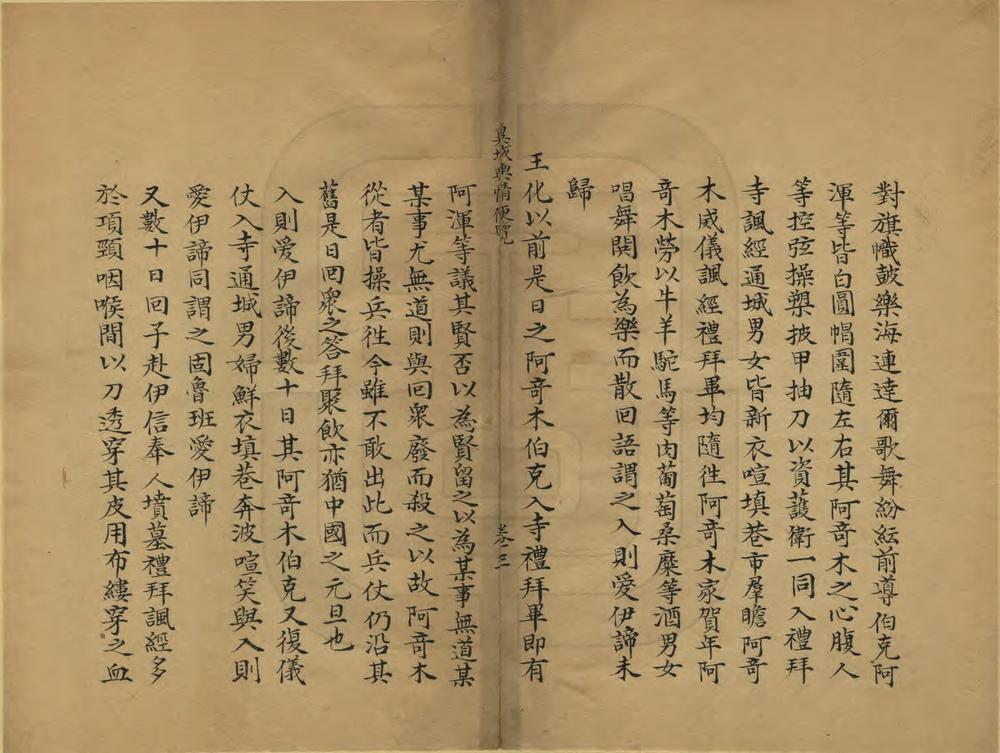 對旗幟鼓樂海連達爾歌舞紛紜前導伯克阿
渾等皆白圓帽圍隨左右其阿竒木之心腹人
等控弦操槊披甲抽刀以資護衛一同入禮拜
寺諷經通城男女皆新衣喧填巷市羣瞻阿竒
木威儀諷經禮拜畢均隨徃阿竒木家賀年阿
竒木勞以牛羊駝馬等肉葡萄桑糜等酒男女
唱舞閧飲為樂而散回語謂之入則愛伊諦未
歸
王化以前是日之阿竒木伯克入寺禮拜畢即有
異域輿情便覽
卷三
阿渾等議其賢否以為賢留之以為某事無道某
某事尤無道則與回衆廢而殺之以故阿竒木
從者皆操兵徃今雖不敢出此而兵仗仍沿其
舊是日回衆之答拜聚飲亦猶中國之元旦也
入則愛伊諦後數十日其阿竒木伯克又復儀
仗入寺通城男婦鮮衣填巷奔波喧笑與入則
愛伊諦同謂之固魯班愛伊諦
又數十日回子赴伊信奉人墳墓禮拜諷經多
於項頸咽喉間以刀透穿其皮用布縷穿之血